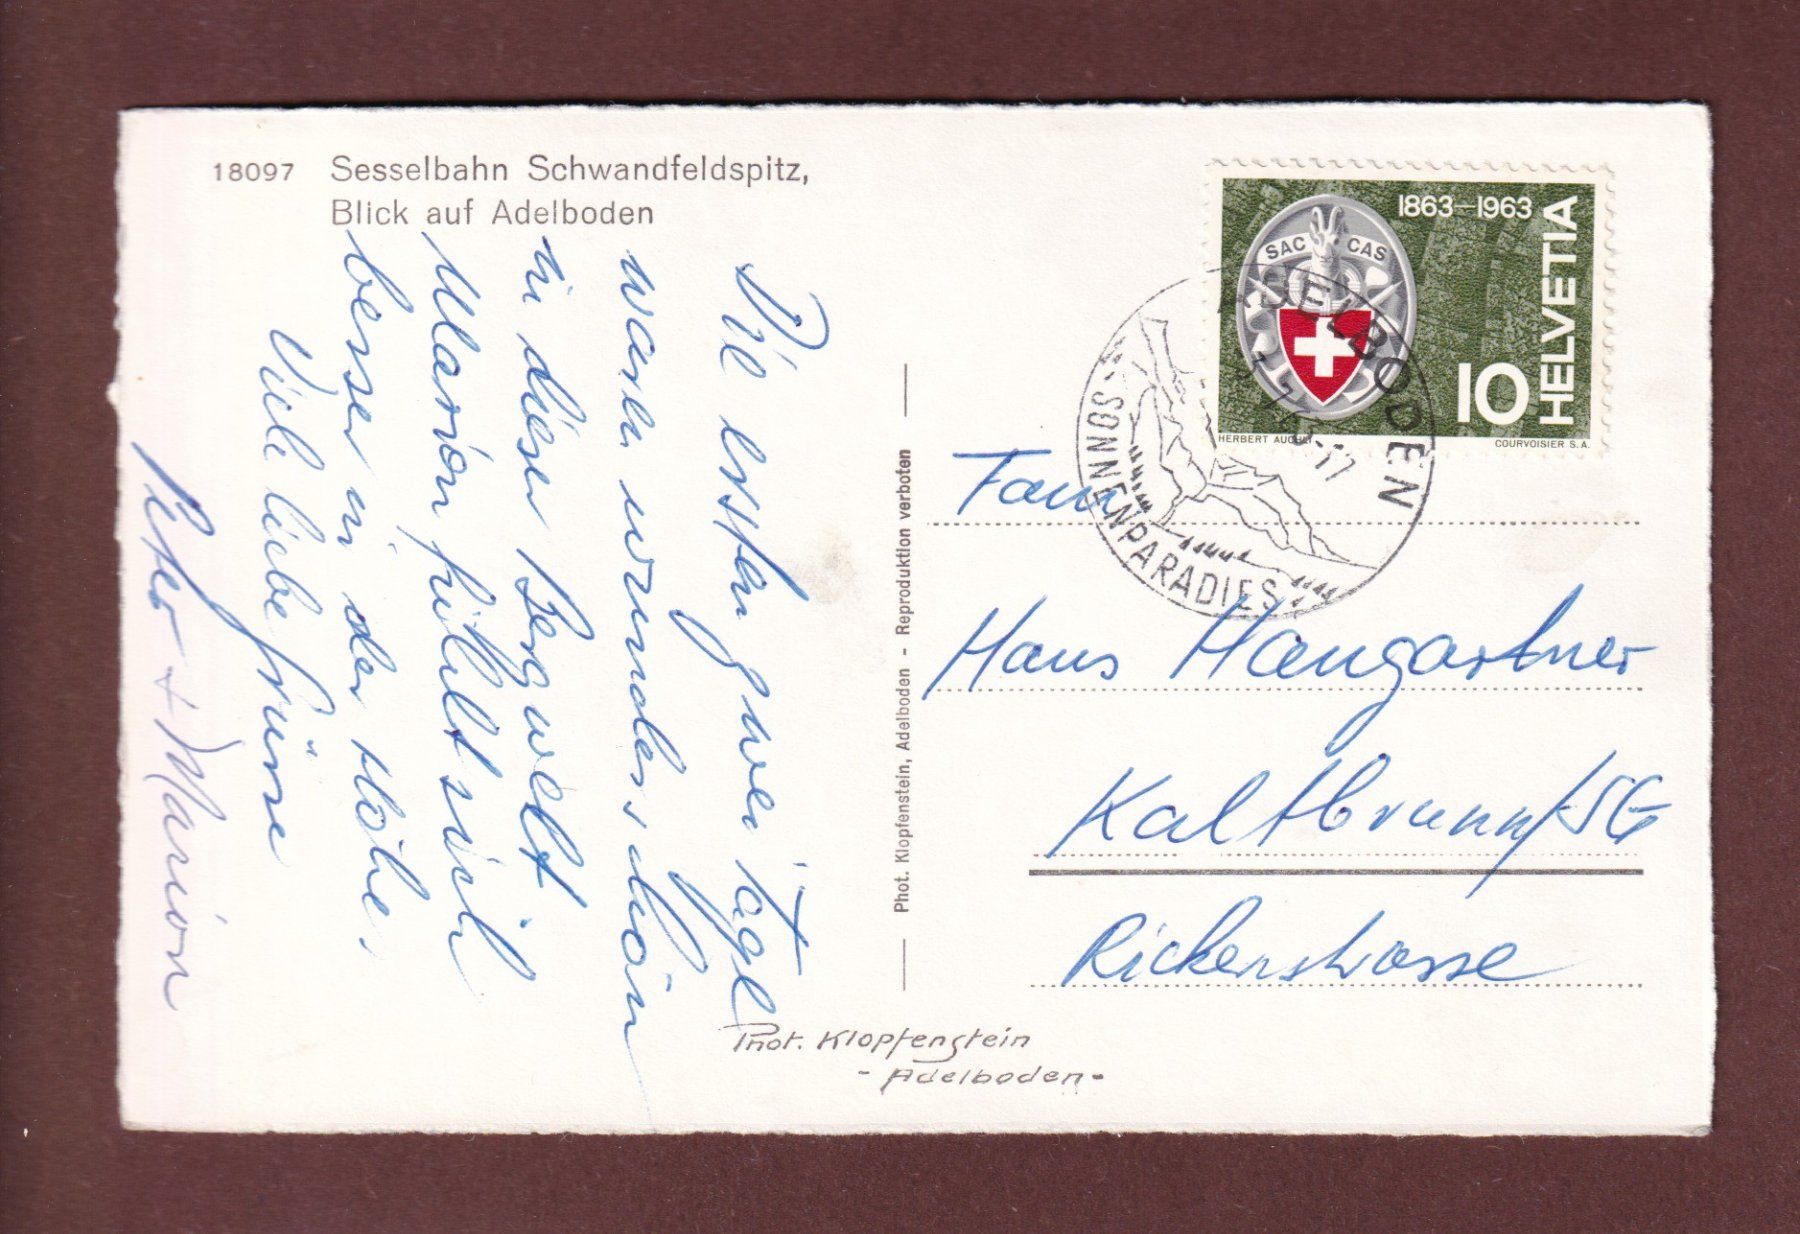 18097 Sesselbahn Schwandfeldspitz,
Blick auf Adelboden
Die ersten zwei Tage
waren wunderschön
in dieser Bergwelt
Marion fühlt sich
besser in der Höhe.
Viele liebe Grüsse
Peter + Marion
Phot. Klopfenstein, Adelboden - Reproduktion verboten
Phot. Klopfenstein
- Adelboden -
1863-1963
SAC CAS
HELVETIA
10
HERBERT AUCHLI COURVOISIER S.A.
ADELBODEN
SONNEN
ENPARADIES
Fam
Hans Hangartner
Kaltbrunn/SG
Rickenstrasse